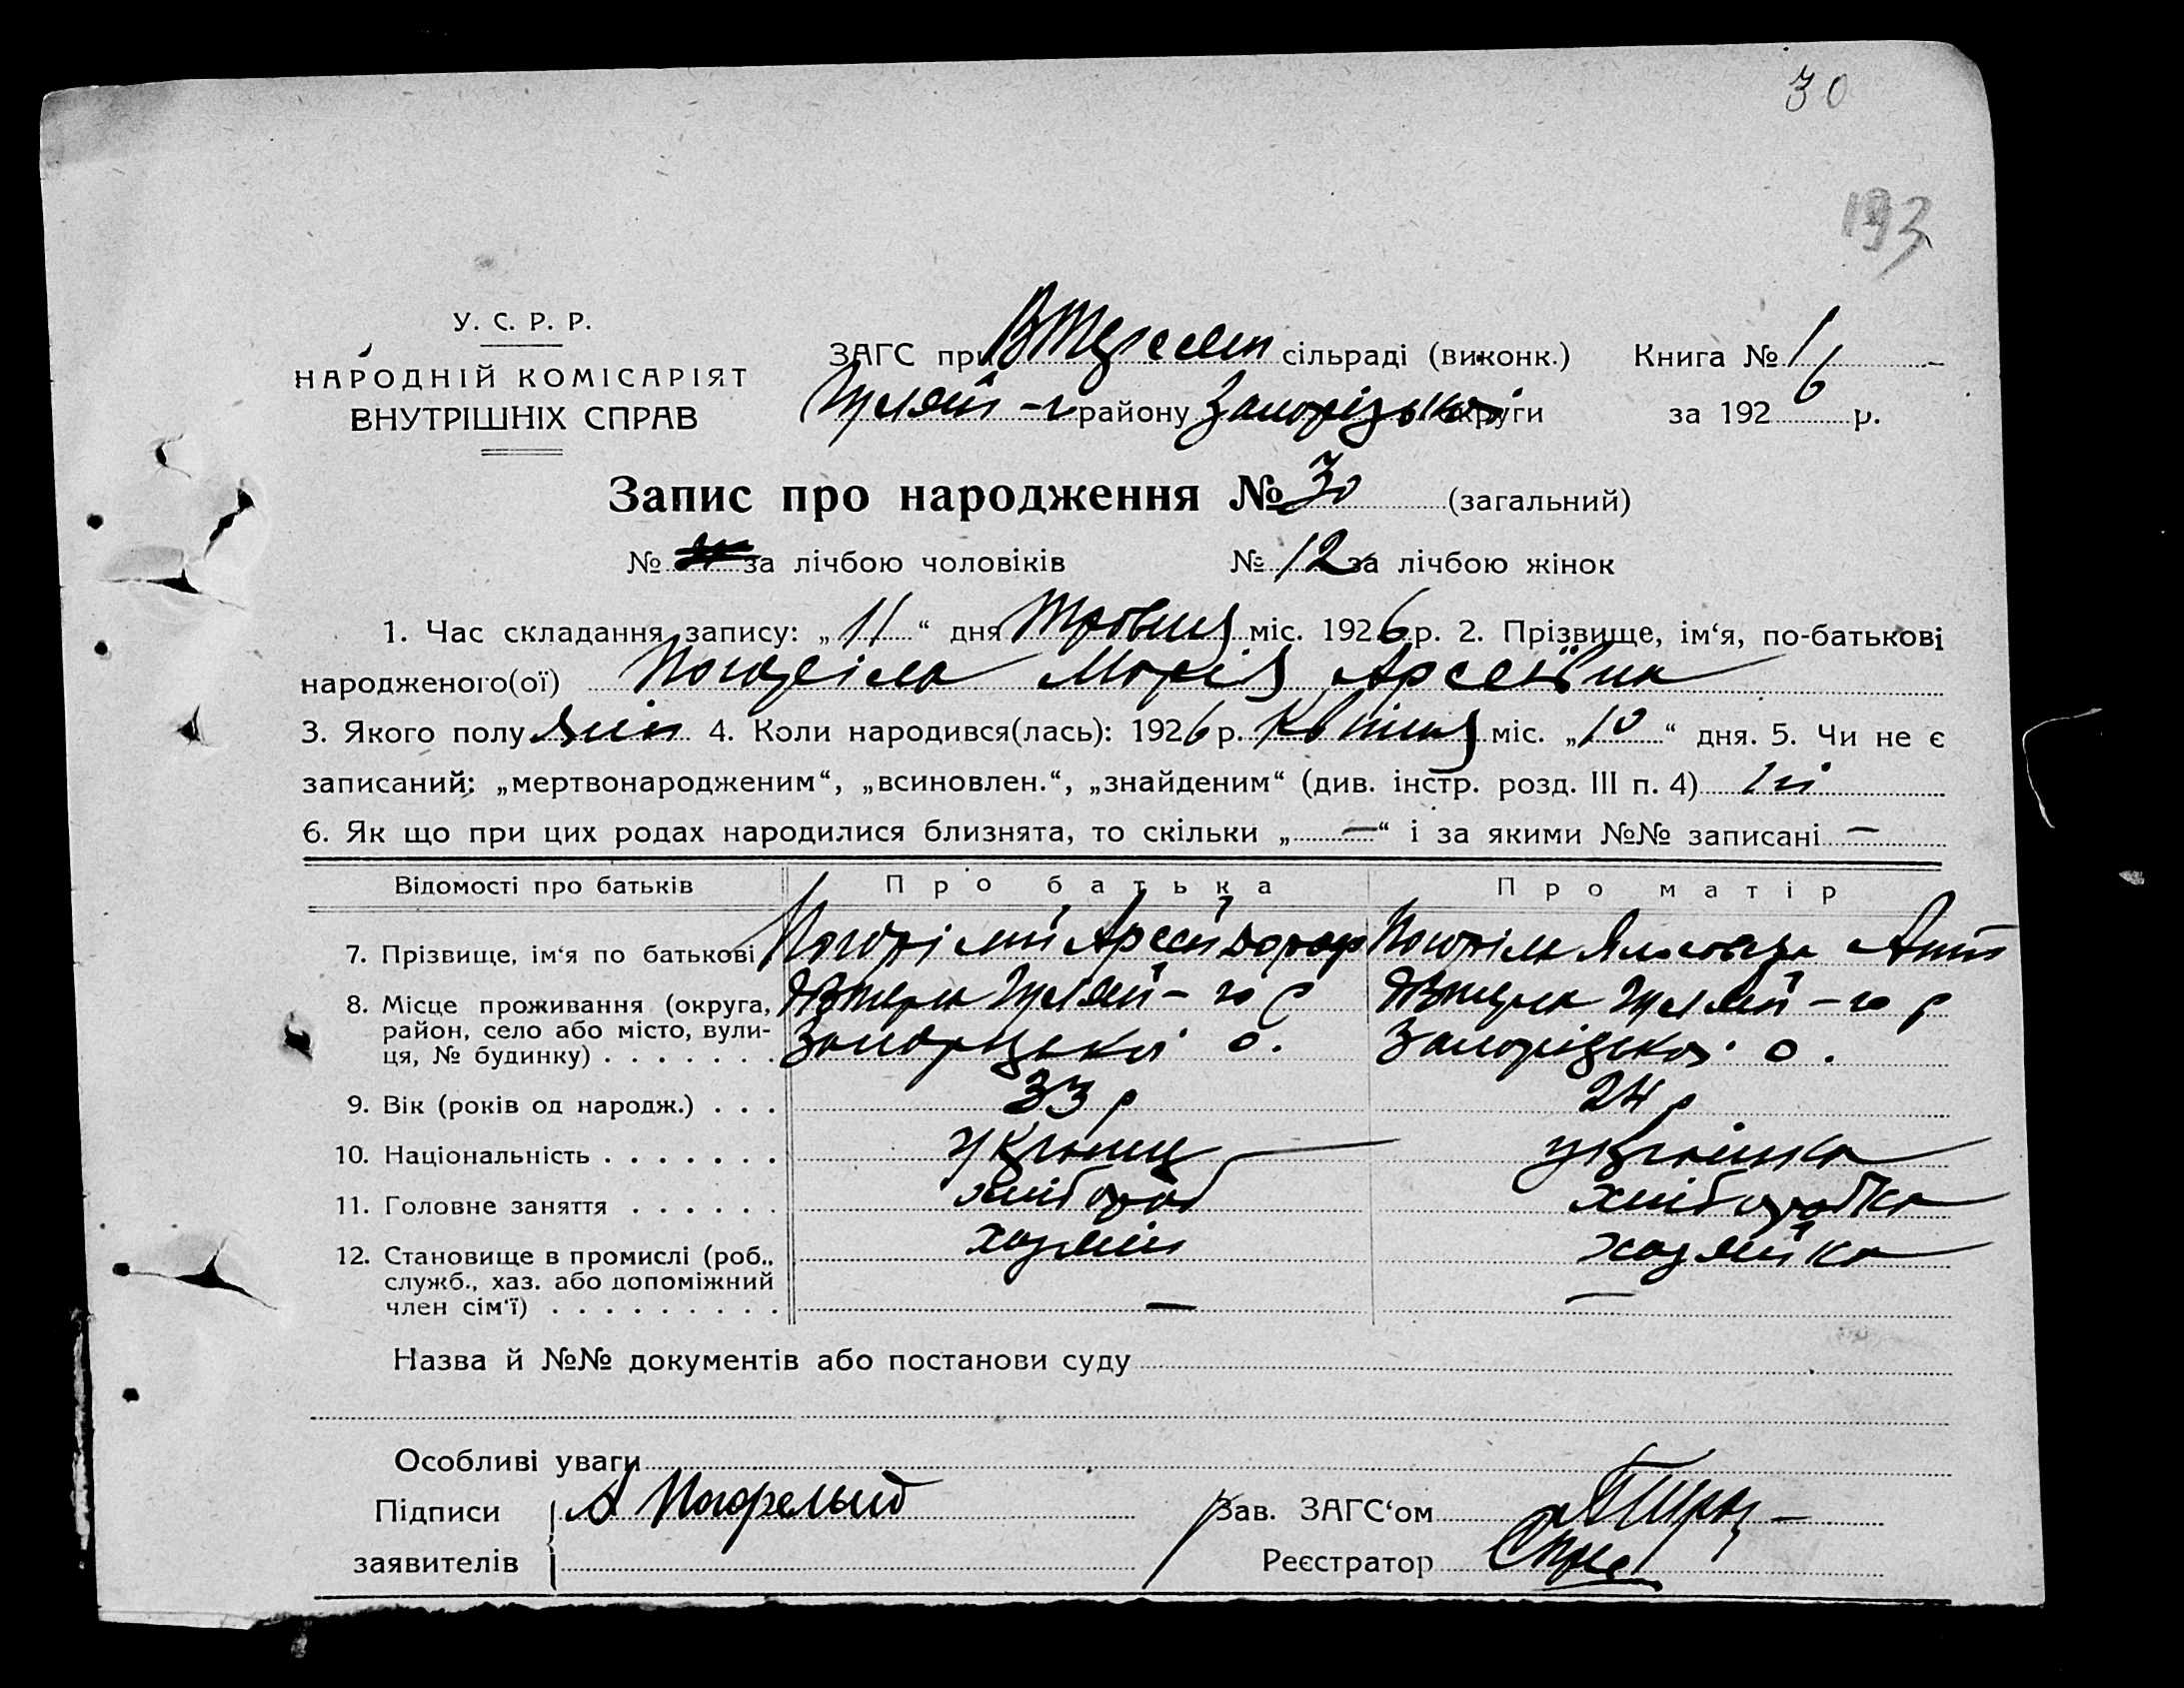 30
193
У. С. Р. Р.
НАРОДНІЙ КОМІСАРІЯТ
ВНУТРІШНІХ СПРАВ
ЗАГС при сільраді (виконк.) Книга № 1
району Запорізької округи за 1926 р.
Запис про народження № 30 (загальний)
№ за лічбою чоловіків № 12 за лічбою жінок
1. Час складання запису: „11“ дня Травня міс. 1926 р. 2. Прізвище, ім‘я, по-батькові
народженого(ої) Погоріла Марія Арсенівна
3. Якого полу жін 4. Коли народився(лась): 1926 р. Квітня міс. „10“ дня. 5. Чи не є
записаний: „мертвонародженим“, „всиновлен.“, „знайденим“ (див. інстр. розд. III п. 4) ні
6. Як що при цих родах народилися близнята, то скільки „—“ і за якими №№ записані —
Відомості про батьків Про батька Про матір
7. Прізвище, ім‘я по батькові Погорілий Арсей Погоріла
8. Місце проживання (округа,
район, село або місто, вули-
ця, № будинку) . . . . . . . Запорізької о. Запорізької о.
9. Вік (років од народж.) . . . 33 р 24 р
10. Національність . . . . . . . українка
11. Головне заняття . . . . . . хлібороб хліборобка
12. Становище в промислі (роб.,
служб., хаз. або допоміжний
член сім‘ї) . . . . . . . . . хазяїн хазяйка
— —
Назва й №№ документів або постанови суду
Особливі уваги
Підписи А Погорелый Зав. ЗАГС‘ом
заявителів Реєстратор